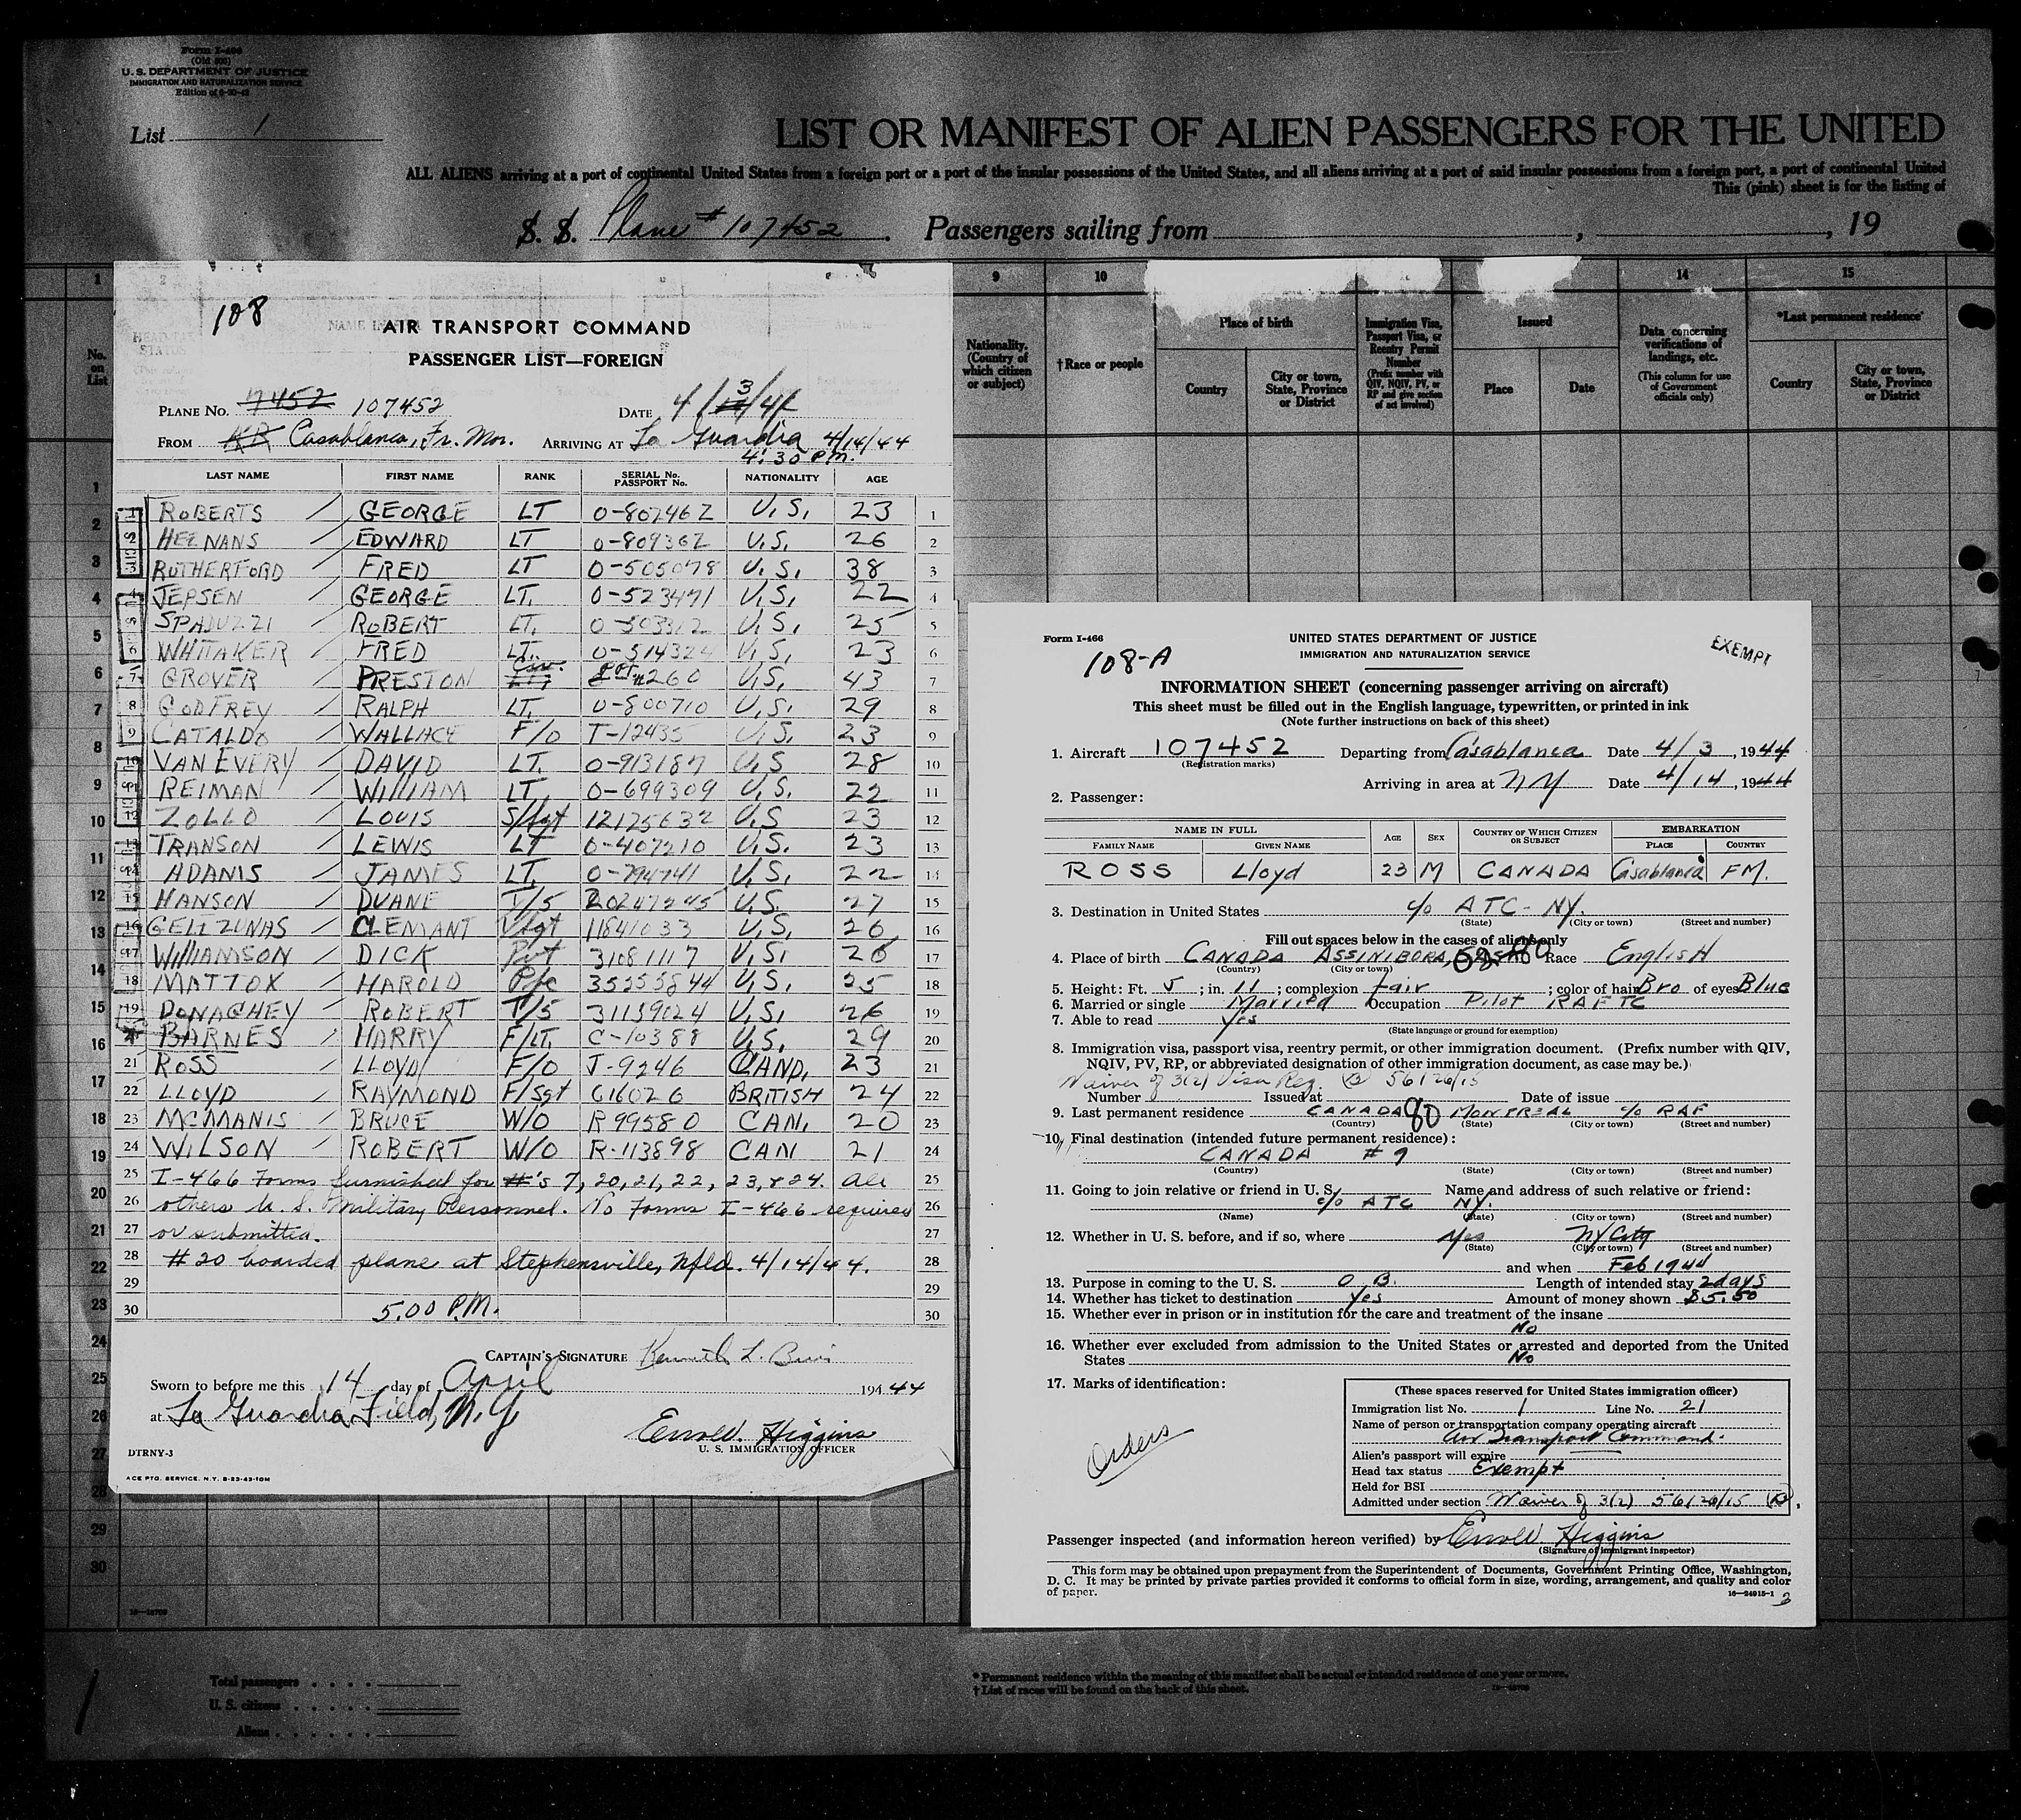 Form I-466
(Old 500)
U. S. DEPARTMENT OF JUSTICE
IMMIGRATION AND NATURALIZATION SERVICE
List 1
LIST OR MANIFEST OF ALIEN PASSENGERS FOR THE UNITED
ALL ALIENS arriving at a port of continental United States from a foreign port or a port of the insular possessions of the United States, and all aliens arriving at a port of said insular possessions from a foreign port, a port of continental United
This (pink) sheet is for the listing of
S. S. Plane # 107452. Passengers sailing from , , 19
1 9 10 14 15
No. on List
Nationality. (Country of which citizen or subject)
†Race or people
Place of birth
Country
City or town, State, Province or District
Immigration Visa, Passport Visa, or Reentry Permit Number
(Prefix number with QIV, NQIV, PV, or RP and give section of act involved)
Issued
Place
Date
Data concerning verifications of landings, etc.
(This column for use of Government officials only)
*Last permanent residence
Country
City or town, State, Province or District
108
AIR TRANSPORT COMMAND
PASSENGER LIST—FOREIGN
PLANE NO. 17452 107452 DATE 4/3/44
FROM Casablanca, Fr. Mor. ARRIVING AT La Guardia 4/14/44
4:30 P.M.
LAST NAME FIRST NAME RANK SERIAL No. PASSPORT No. NATIONALITY AGE
ROBERTS / GEORGE LT 0-807462 U.S. 23 1
HEENANS / EDWARD LT 0-809362 U.S. 26 2
RUTHERFORD / FRED LT 0-505078 U.S. 38 3
JEPSEN / GEORGE LT. 0-523471 U.S. 22 4
SPAJUZZI / ROBERT LT. 0-503312 U.S. 25 5
WHITAKER / FRED LT. 0-514324 U.S. 23 6
7 GROVER / PRESTON Civ. PPT #260 U.S. 43 7
8 GODFREY / RALPH LT. 0-800710 U.S. 29 8
9 CATALDO / WALLACE F/O T-12435 U.S. 23 9
10 VAN EVERY / DAVID LT. 0-913187 U.S 28 10
11 REIMAN / WILLIAM LT. 0-699309 U.S. 22 11
12 ZOLLO / LOUIS S/Sgt 12175632 U.S 23 12
13 TRANSON / LEWIS LT 0-407210 U.S. 23 13
14 ADAMS / JAMES LT. 0-794741 U.S. 22 14
15 HANSON / DUANE T/5 20247245 U.S. 27 15
16 GELTZUNAS / CLEMANT 11841033 U.S. 26 16
17 WILLIAMSON / DICK Pvt 31081117 U.S. 26 17
18 MATTOX / HAROLD Pfc 35255844 U.S. 25 18
19 DONAGHEY / ROBERT T/5 31139024 U.S. 26 19
BARNES / HARRY F/LT. C-10388 U.S. 29 20
21 ROSS / LLOYD F/O J-9246 CAND. 23 21
22 LLOYD / RAYMOND F/Sgt 616026 BRITISH 24 22
23 MCMANIS / BRUCE W/O R99580 CAN. 20 23
24 WILSON / ROBERT W/O R-113898 CAN 21 24
25 I-466 Forms furnished for #'s 7, 20, 21, 22, 23, & 24. All 25
26 others U. S. Military Personnel. No Forms I-466 required 26
27 or submitted. 27
28 #20 boarded plane at Stephensville, Nfld. 4/14/44. 28
29 29
30 5:00 P.M. 30
CAPTAIN'S SIGNATURE Kenneth L.
Sworn to before me this 14 day of April 194 44
at La Guardia Field, N.Y.
Errol W. Higgins
U. S. IMMIGRATION OFFICER
DTRNY-3
ACE PTG. SERVICE, N.Y. 8-23-43-10M
Form I-466
108-A
UNITED STATES DEPARTMENT OF JUSTICE
IMMIGRATION AND NATURALIZATION SERVICE
EXEMPT
INFORMATION SHEET (concerning passenger arriving on aircraft)
This sheet must be filled out in the English language, typewritten, or printed in ink
(Note further instructions on back of this sheet)
1. Aircraft 107452 Departing from Casablanca Date 4/3, 1944
(Registration marks)
Arriving in area at NY Date 4/14, 1944
2. Passenger:
NAME IN FULL AGE SEX COUNTRY OF WHICH CITIZEN OR SUBJECT EMBARKATION
FAMILY NAME GIVEN NAME PLACE COUNTRY
ROSS Lloyd 23 M CANADA Casablanca FM.
3. Destination in United States c/o ATC - NY.
(State) (City or town) (Street and number)
Fill out spaces below in the cases of aliens only
4. Place of birth CANADA ASSINIBORA, Race English
(Country) (City or town)
5. Height: Ft. 5; in. 11; complexion Fair; color of hair Bro of eyes Blue
6. Married or single Married Occupation Pilot RAFTC
7. Able to read Yes
(State language or ground for exemption)
8. Immigration visa, passport visa, reentry permit, or other immigration document. (Prefix number with QIV, NQIV, PV, RP, or abbreviated designation of other immigration document, as case may be.)
Waiver of 3(2) Visa Req. (B) 56126/15
Number Issued at Date of issue
9. Last permanent residence CANADA 80 MONTREAL c/o RAF
(Country) (State) (City or town) (Street and number)
10. Final destination (intended future permanent residence):
CANADA #9
(Country) (State) (City or town) (Street and number)
11. Going to join relative or friend in U. S. Name and address of such relative or friend:
c/o ATC NY.
(Name) (State) (City or town) (Street and number)
12. Whether in U. S. before, and if so, where Yes NY City
(State) (City or town) (Street and number)
and when Feb 1944
13. Purpose in coming to the U. S. O.B. Length of intended stay 2 days
14. Whether has ticket to destination Yes Amount of money shown $5.50
15. Whether ever in prison or in institution for the care and treatment of the insane
No
16. Whether ever excluded from admission to the United States or arrested and deported from the United
States No
17. Marks of identification:
Orders
(These spaces reserved for United States immigration officer)
Immigration list No. 1 Line No. 21
Name of person or transportation company operating aircraft
Air Transport Command
Alien's passport will expire
Head tax status Exempt
Held for BSI
Admitted under section Waiver of 3(2) 56126/15 (B).
Passenger inspected (and information hereon verified) by Errol W. Higgins
(Signature of immigrant inspector)
This form may be obtained upon prepayment from the Superintendent of Documents, Government Printing Office, Washington,
D. C. It may be printed by private parties provided it conforms to official form in size, wording, arrangement, and quality and color
of paper. 16—24915-1
Total passengers
U. S. citizens
Aliens
* Permanent residence within the meaning of this manifest shall be actual or intended residence of one year or more.
† List of races will be found on the back of this sheet.
1